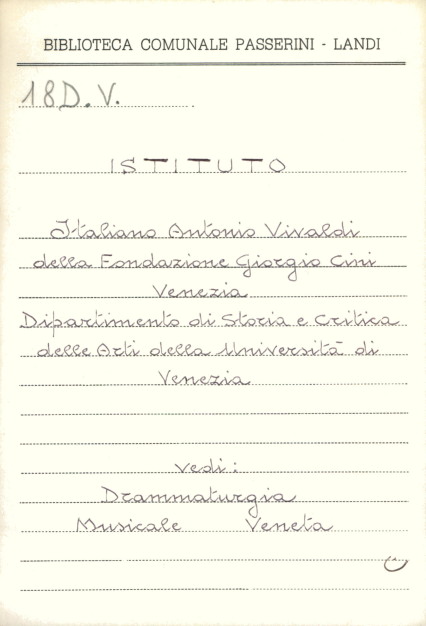 BIBLIOTECA COMUNALE PASSERINI - LANDI
18D.V.
ISTITUTO
Italiano Antonio Vivaldi
della Fondazione Giorgio Cini
Venezia
Dipartimento di Storia e Critica
delle Arti della Università di
Venezia
vedi:
Drammaturgia
Musicale Veneta